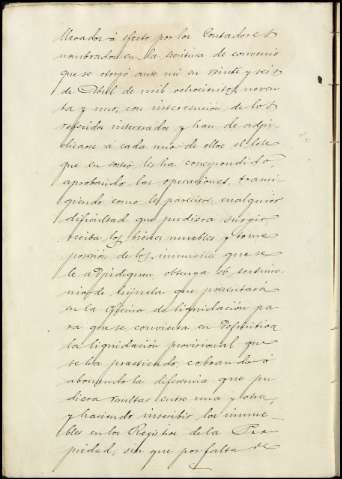 llevadas á efecto por los Contadores
nombrados en la escritura de convenio
que se otorgó ante mí en veinte y seis
de Abril de mil ochocientos noven-
ta y uno, con intervención de los
referidos interesados y han de adju-
dicarse á cada uno de ellos el lote
que en sorteo les ha correspondido,
aprobando las operaciones, transi-
giendo como les parezca cualquier
dificultad que pudiera surgir
reciba los bienes muebles y tome
posesión de los inmuebles que se
le adjudiquen obtenga el testimo-
nio de hijuela que presentará
en la oficina de liquidación pa-
ra que se convierta en definitiva
la liquidación provisional que
se ha practicado, cobrando ó
abonando la diferencia que pu-
diera resultar entre una y otra,
y haciendo inscribir los inmue-
bles en los Registros de la Pro-
piedad, sin que por falta de